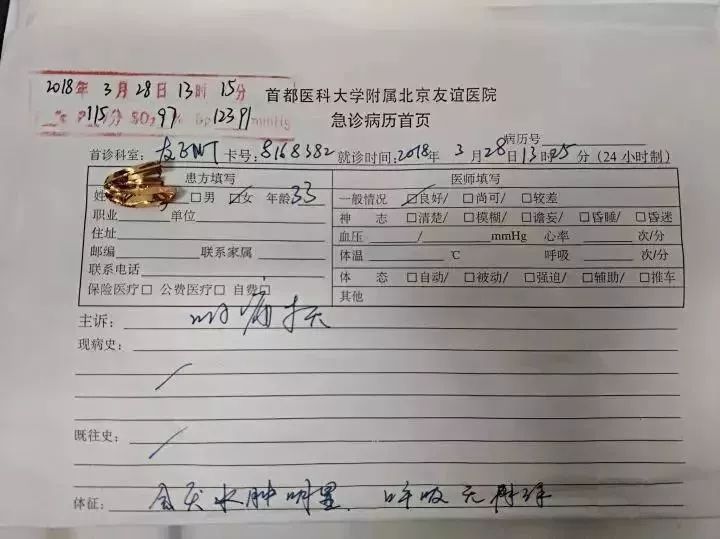 2018年 3月 28日 13时 15分
P115分 SO2 97% Bp 123/91 mmHg
首都医科大学附属北京友谊医院
急诊病历首页
病历号
首诊科室： 卡号：8168382 就诊时间：2018年 3月28日13时25分（24小时制）
患方填写 医师填写
姓 □男 ☑女 年龄33 一般情况 ☑良好/ □尚可/ □较差
职业 单位 神 志 □清楚/ □模糊/ □谵妄/ □昏睡/ □昏迷
住址 血压 / mmHg 心率 次/分
邮编 联系家属 体温 ℃ 呼吸 次/分
联系电话 体 态 □自动/ □被动/ □强迫/ □辅助/ □推车
保险医疗□ 公费医疗□ 自费□ 其他
主诉：
现病史：
既往史：
体征： 水肿明显. 呼吸无